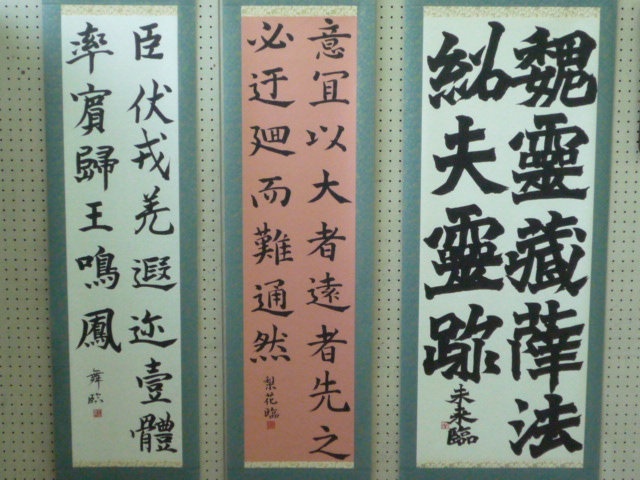 魏靈藏薛法
紹夫靈跡
未来臨
意宜以大者遠者先之
必迂廻而難通然
梨花臨
臣伏戎羌遐迩壹體
率賓歸王鳴鳳
舞臨